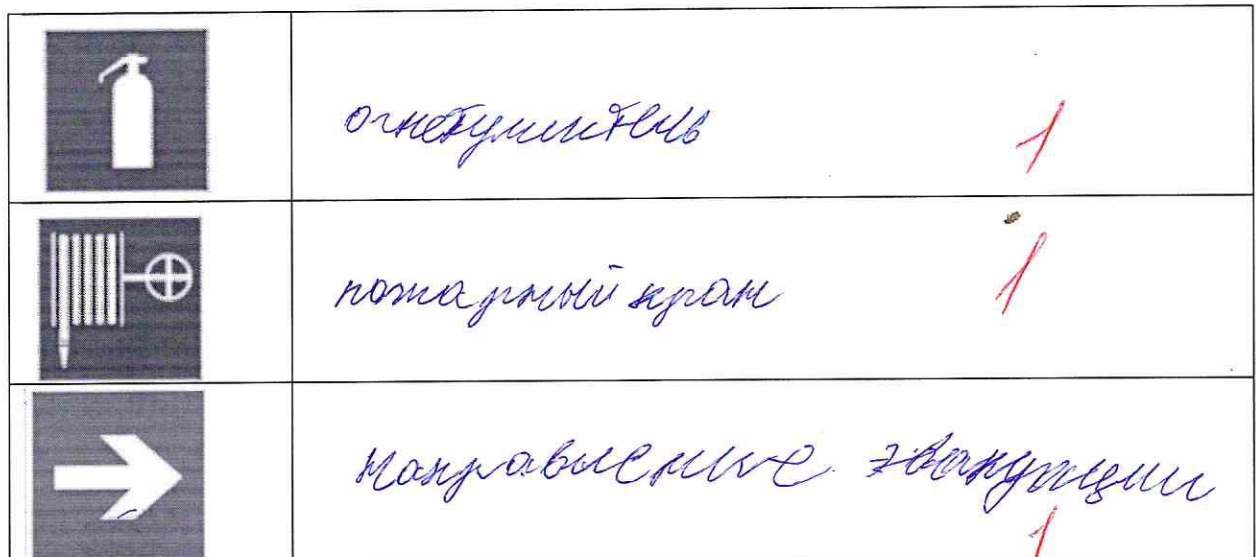 огнетушитель 1
пожарный кран 1
направление эвакуации
1